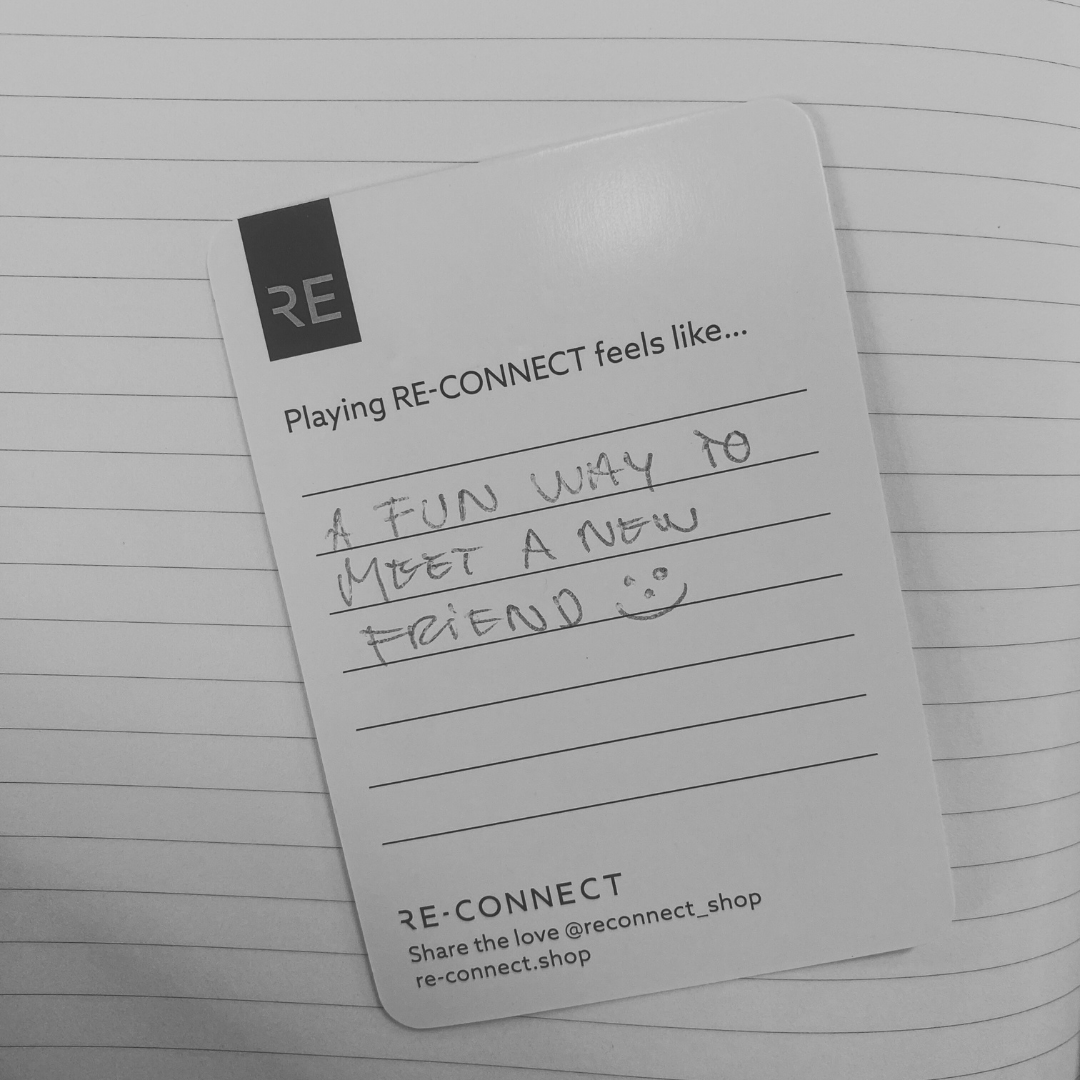 RE
Playing RE-CONNECT feels like...
A FUN WAY TO
MEET A NEW
FRIEND
RE-CONNECT
Share the love @reconnect_shop
re-connect.shop